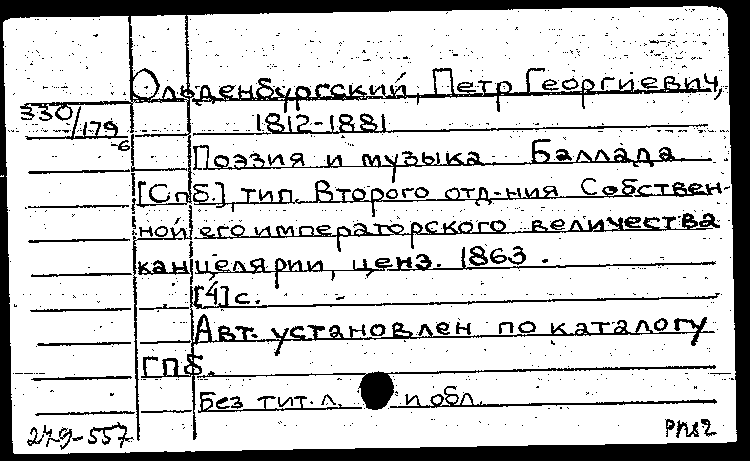 Ольденбургский, Петр Георгиевич,
330/179-6
1812-1881
Поэзия и музыка Баллада
[Спб.], тип. Второго отд-ния Собствен-
ной его императорского величества
канцелярии, ценз. 1863.
[4] с.
Авт. установлен по каталогу
ГПБ.
Без тит. л. и обл.
279-557